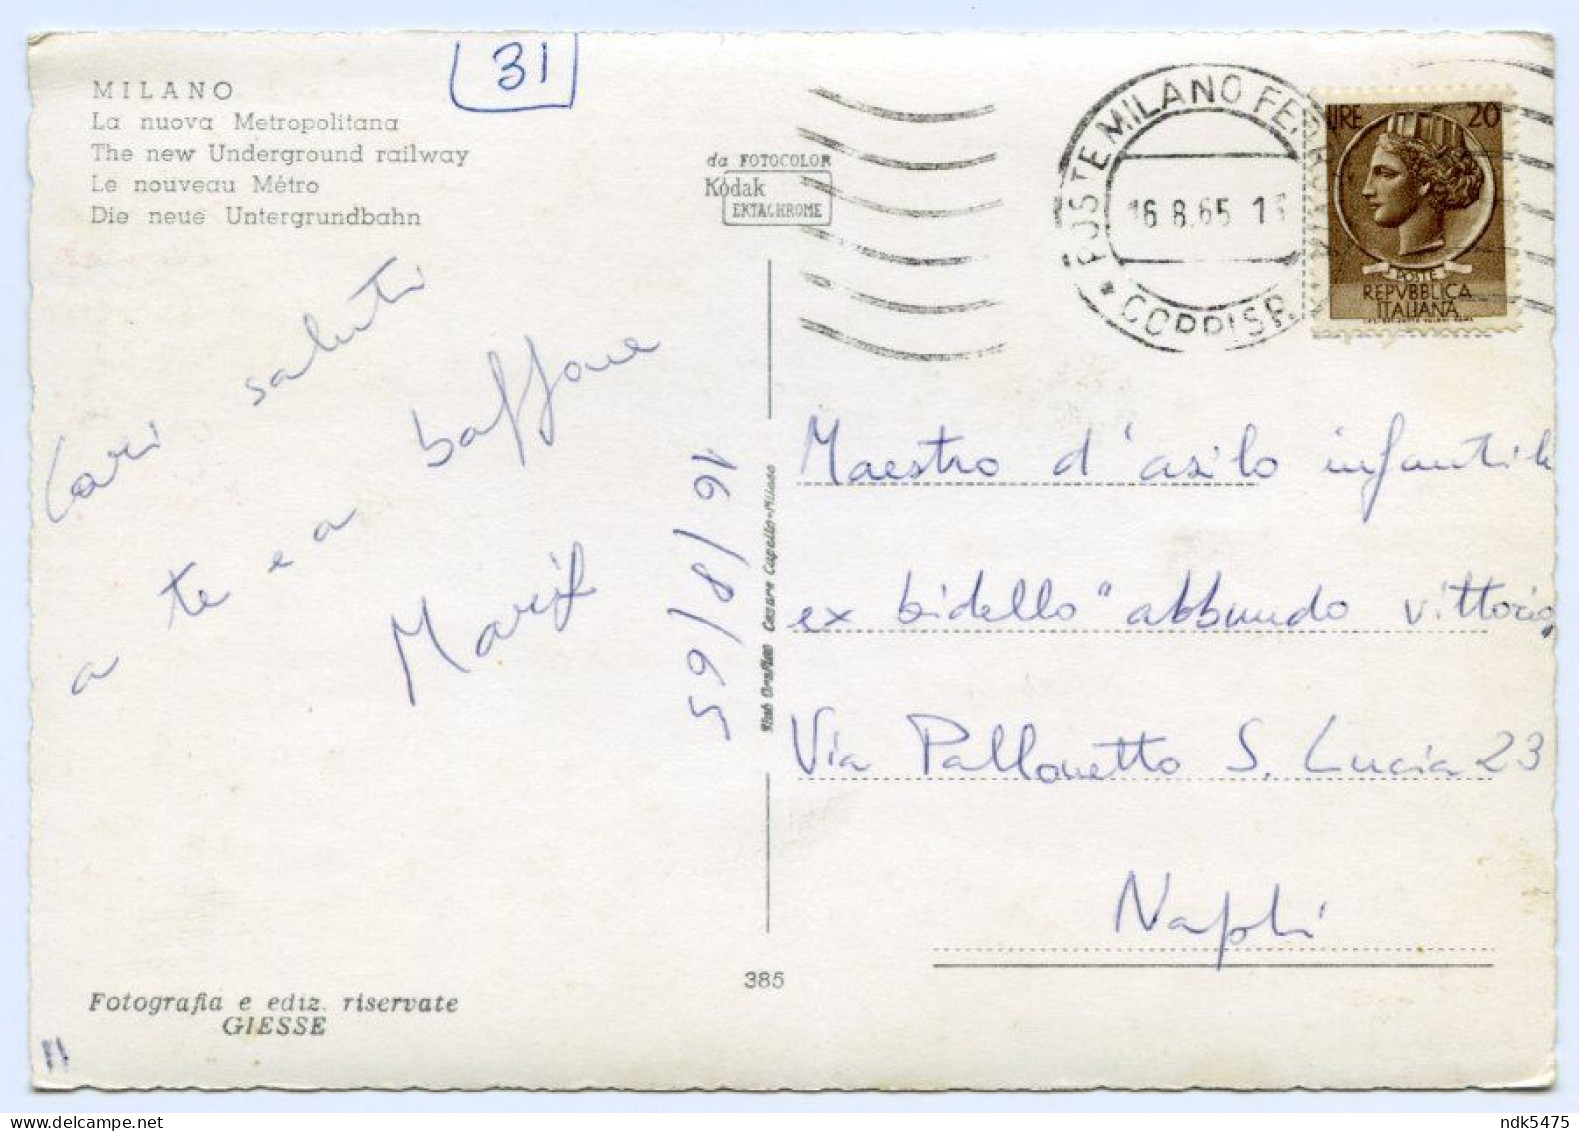 31
MILANO
La nuova Metropolitana
The new Underground railway
Le nouveau Métro
Die neue Untergrundbahn
da FOTOCOLOR
Kodak
EKTACHROME
POSTE MILANO FERROVIA
16.8.65
* CORRISP
LIRE 20
POSTE
REPVBBLICA
ITALIANA
Cari saluti
a te e a baffone
16/8/65
Cesare Capello-Milano
Maestro d'asilo infantile
ex bidello "abbundo vittorio"
Via Pallonetto S. Lucia 23
Napoli
385
Fotografia e ediz. riservate
GIESSE
11
www.delcampe.net
ndk5475